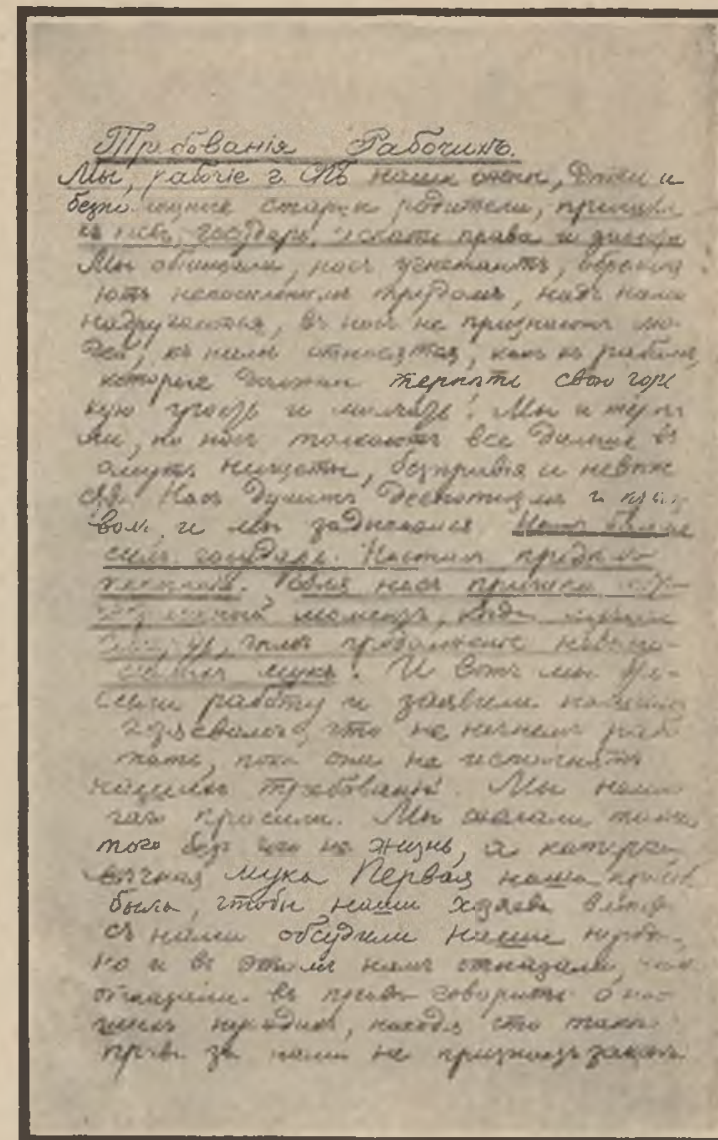 Требованія Рабочихъ.
Мы, рабочіе г. СПБ наши жены, дѣти и
безпомощные старцы родители, пришли
къ тебѣ, государь, искать права и защиты
Мы обнищали, насъ угнетаютъ, обременя
ютъ непосильнымъ трудомъ, надъ нами
надругаются, въ насъ не признаютъ лю-
дей, къ намъ относятся, какъ къ рабамъ,
которые должны терпѣть свою горь
кую участь и молчать! Мы и терпѣ
ли, но насъ толкаютъ все дальше въ
омутъ нищеты, безправія и невѣже
ства. Насъ душитъ деспотизмъ и произ
волъ, и мы задыхаемся. Нѣтъ больше
силъ государь. Насталъ предѣлъ
терпенію. Для насъ пришелъ
моментъ, когда лучше
смерть, чѣмъ продолженіе невыно-
симыхъ мукъ. И вотъ мы бро-
сили работу и заявили нашимъ
хозяевамъ, что не начнемъ рабо
тать, пока они не исполнятъ
нашихъ требованій. Мы мало
чего просили. Мы желали только
того безъ чего не жизнь, а каторга
вѣчная мука Первая наша просьба
была, чтобы наши хозяева вмѣстѣ
съ нами обсудили наши нужды,
но и въ этомъ намъ отказали, намъ
отказали въ правѣ говорить о на-
шихъ нуждахъ, находя что такого
права за нами не признаетъ законъ